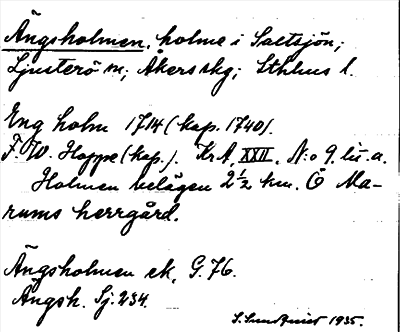 Ängsholmen, holme i Saltsjön;
Ljusterö sn; Åkers skg; Sthlms l.
Eng holm 1714 (kop. 1740).
F. W. Hoppe (kop.). Kr A, XXII, N:o 9. lit. a.
Holmen belägen 2 ½ km. Ö Ma-
rums herrgård.
Ängsholmen ek, G. 76.
Ängsh. Sj. 234.
1935.